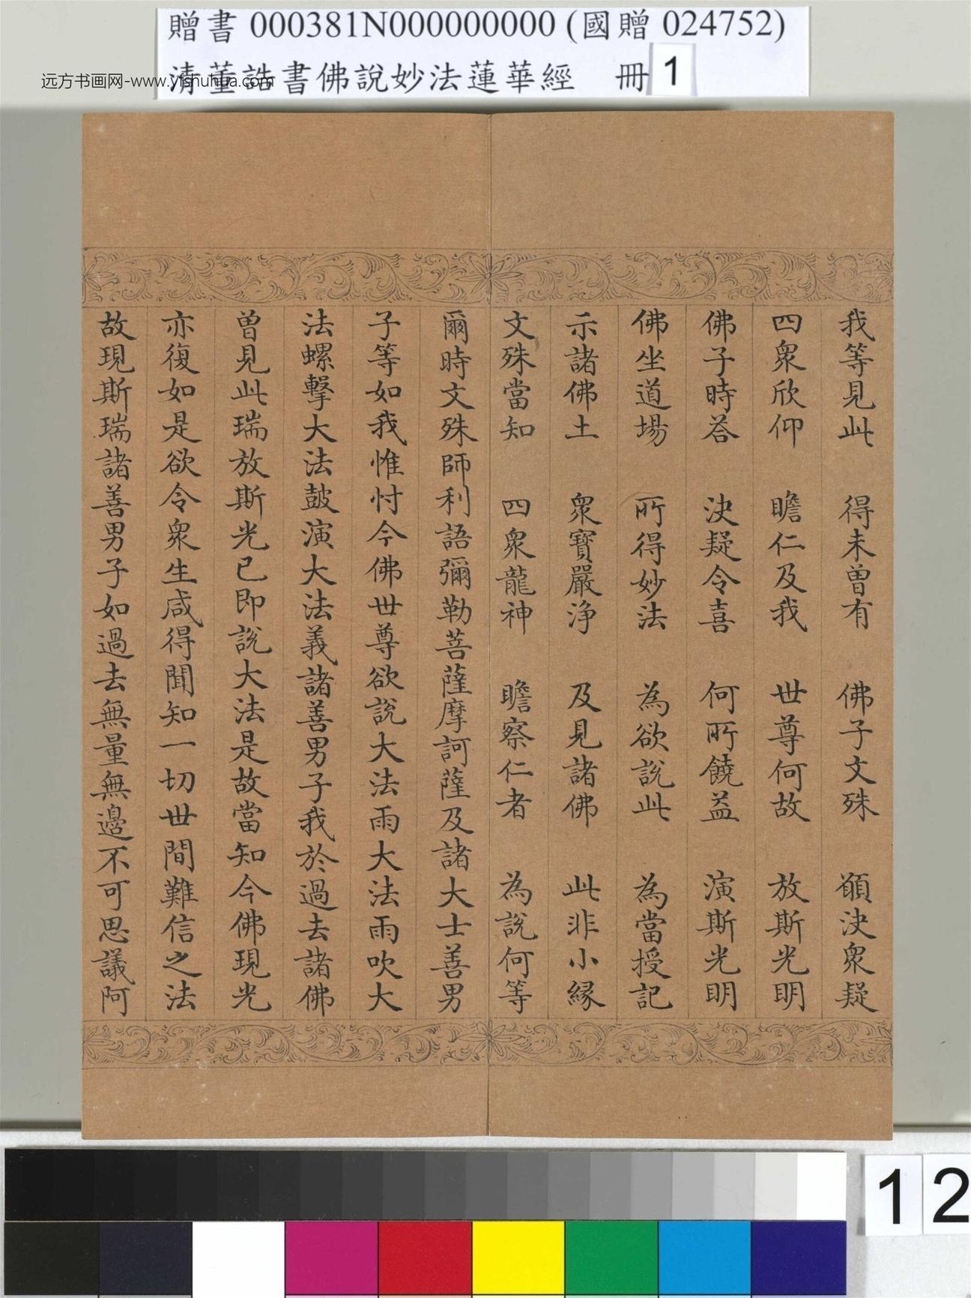 贈書 000381N000000000 (國贈 024752)
清董誥書佛說妙法蓮華經 冊 1
远方书画网-www.yfshuhua.com
我等見此 得未曾有 佛子文殊 願決衆疑
四衆欣仰 瞻仁及我 世尊何故 放斯光明
佛子時荅 決疑令喜 何所饒益 演斯光明
佛坐道場 所得妙法 為欲說此 為當授記
示諸佛土 衆寶嚴淨 及見諸佛 此非小緣
文殊當知 四衆龍神 瞻察仁者 為說何等
爾時文殊師利語彌勒菩薩摩訶薩及諸大士善男
子等如我惟忖今佛世尊欲說大法雨大法雨吹大
法螺擊大法鼓演大法義諸善男子我於過去諸佛
曾見此瑞放斯光已即說大法是故當知今佛現光
亦復如是欲令衆生咸得聞知一切世間難信之法
故現斯瑞諸善男子如過去無量無邊不可思議阿
12